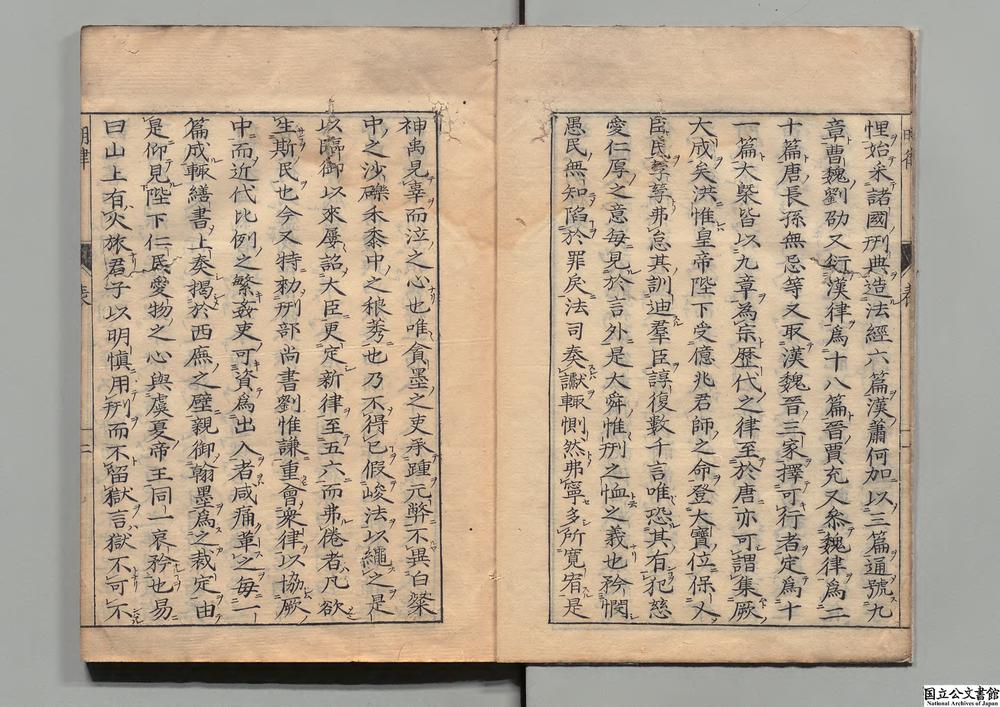 悝始采諸國刑典造法經六篇漢蕭何加以三篇通號九
章曹魏劉劭又衍漢律爲十八篇晉賈充又叅魏律爲二
十篇唐長孫無忌等又取漢魏晉三家擇可行者定爲十
一篇大槩皆以九章爲宗歷代之律至於唐亦可謂集厥
大成矣洪惟皇帝陛下受億兆君師之命登大寶位保乂
臣民孳孳弗怠其訓迪羣臣諄復數千言唯恐其有犯慈
愛仁厚之意每見於言外是大舜惟刑之恤之義也矜憫
愚民無知陷於罪戾法司奏讞輒惻然弗寧多所寬宥是
神禹見辜而泣之心也唯貪墨之吏承踵元弊不異白粲
中之沙礫禾黍中之稂莠也乃不得已假峻法以繩之是
以臨御以來屢詔大臣更定新律至五六而弗倦者凡欲
生斯民也今又特勑刑部尚書劉惟謙重會衆律以協厥
中而近代比例之繁姦吏可資爲出入者咸痛革之每一
篇成輒繕書上奏揭於西廡之壁親御翰墨爲之裁定由
是仰見陛下仁民愛物之心與虞夏帝王同一哀矜也易
曰山上有火旅君子以明慎用刑而不留獄言獄不可不
明律
表
二
国立公文書館
National Archives of Japan